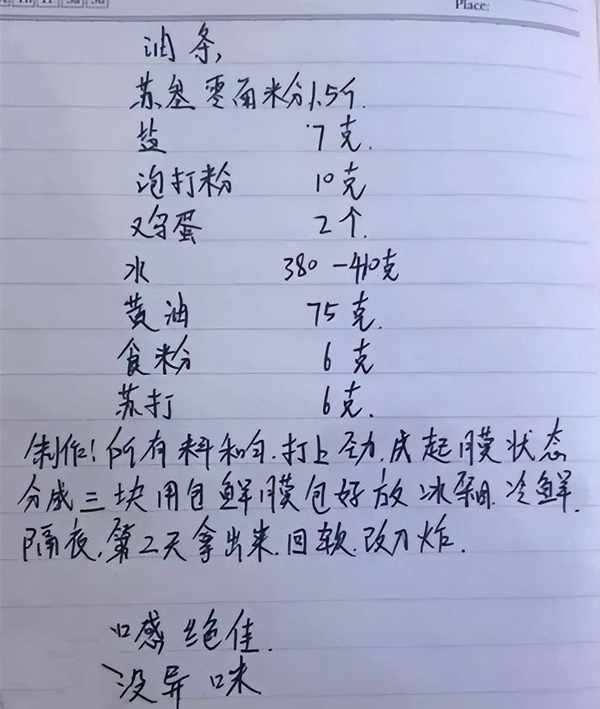 Place:
油条,
苏叁零面粉1.5斤.
盐 7克.
泡打粉 10克
鸡蛋 2个.
水 380-410克
黄油 75克.
食粉 6克
苏打 6克.
制作!所有料和匀.打上劲.成起膜状态
分成三块用包鲜膜包好放冰柜.冷鲜.
隔夜,第二天拿出来.回软.改刀炸.
口感绝佳.
没异味